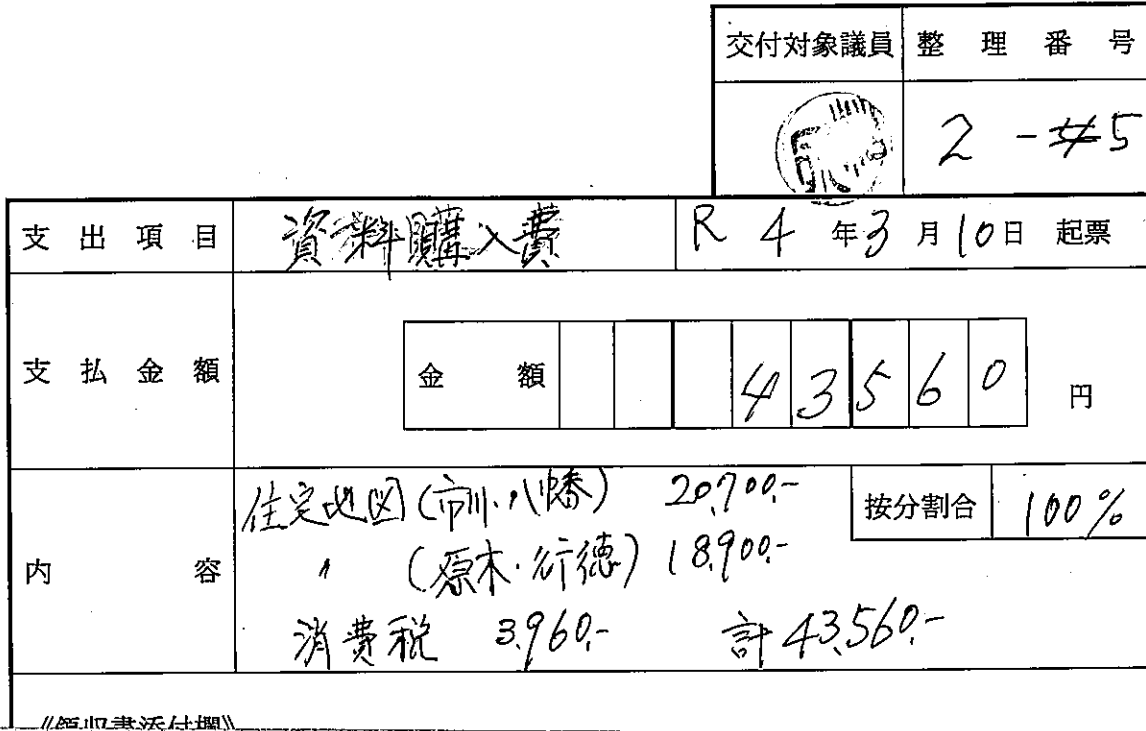 交付対象議員 整理番号
2 - 5
支出項目 資料購入費 R 4 年 3 月 10 日 起票
支払金額 金額 43560 円
内容 住宅地図(市川・八幡) 20,700.- 按分割合 100%
〃 (原木・行徳) 18,900.-
消費税 3,960.- 計 43,560.-
《領収書添付欄》